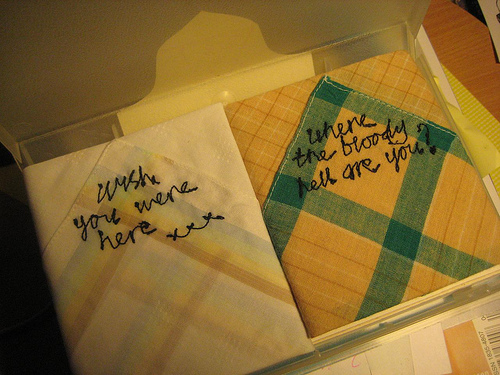 wish
you were
here xxx
where
the bloody
hell are you?